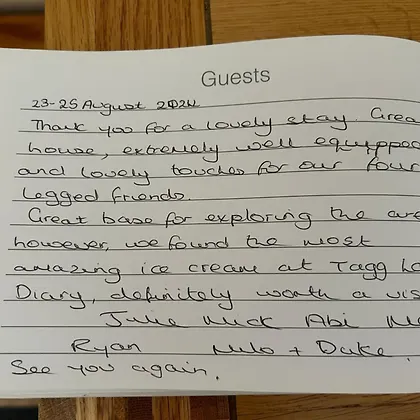 Guests
23-25 August 2024
Thank you for a lovely stay. Grea
house, extremely well equipped
and lovely touches for our four
legged friends.
Great base for exploring the are
however, we found the most
amazing ice cream at Tagg La
Diary, definitely worth a vis
Julie Mick Abi
Ryan Milo + Duke.
See you again.